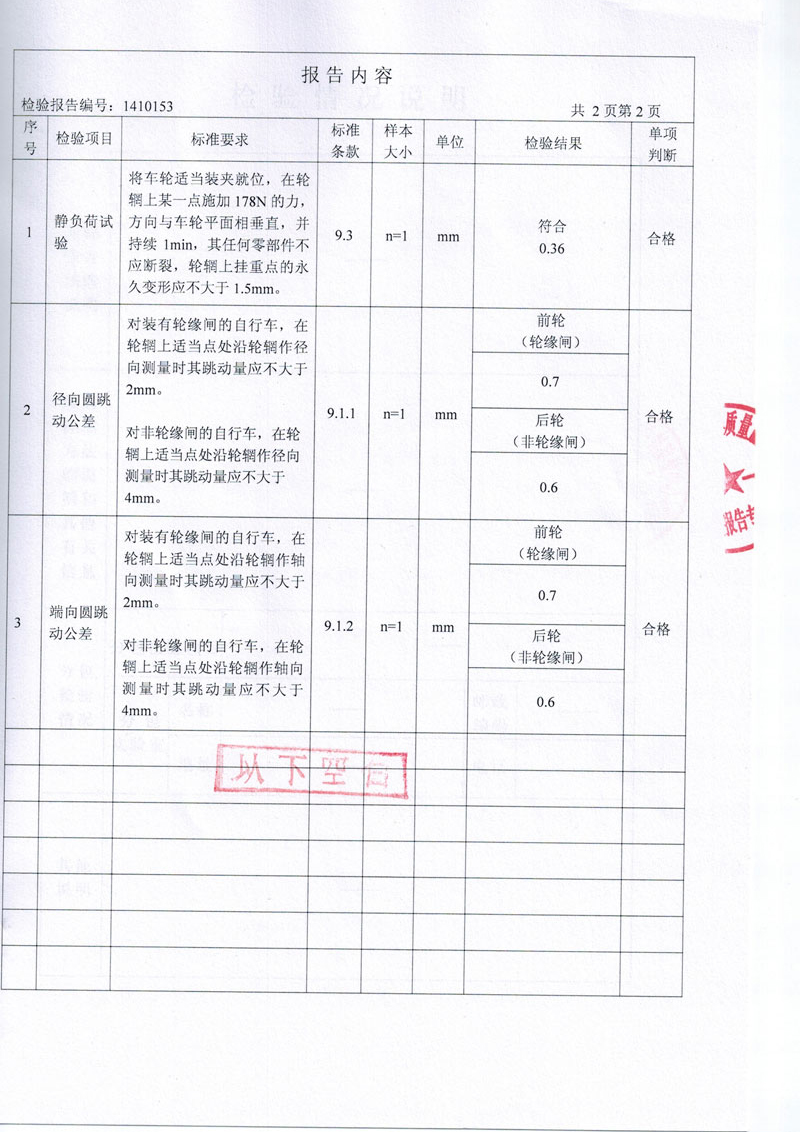 报告内容
检验报告编号：1410153
共 2 页第 2 页
序号
检验项目
标准要求
标准条款
样本大小
单位
检验结果
单项判断
1
静负荷试
验
将车轮适当装夹就位，在轮
辋上某一点施加 178N 的力，
方向与车轮平面相垂直，并
持续 1min，其任何零部件不
应断裂，轮辋上挂重点的永
久变形应不大于 1.5mm。
9.3
n=1
mm
符合
0.36
合格
2
径向圆跳
动公差
对装有轮缘闸的自行车，在
轮辋上适当点处沿轮辋作径
向测量时其跳动量应不大于
2mm。
对非轮缘闸的自行车，在轮
辋上适当点处沿轮辋作径向
测量时其跳动量应不大于
4mm。
9.1.1
n=1
mm
前轮
（轮缘闸）
0.7
后轮
（非轮缘闸）
0.6
合格
3
端向圆跳
动公差
对装有轮缘闸的自行车，在
轮辋上适当点处沿轮辋作轴
向测量时其跳动量应不大于
2mm。
对非轮缘闸的自行车，在轮
辋上适当点处沿轮辋作轴向
测量时其跳动量应不大于
4mm。
9.1.2
n=1
mm
前轮
（轮缘闸）
0.7
后轮
（非轮缘闸）
0.6
合格
以下空白
质量
报告专